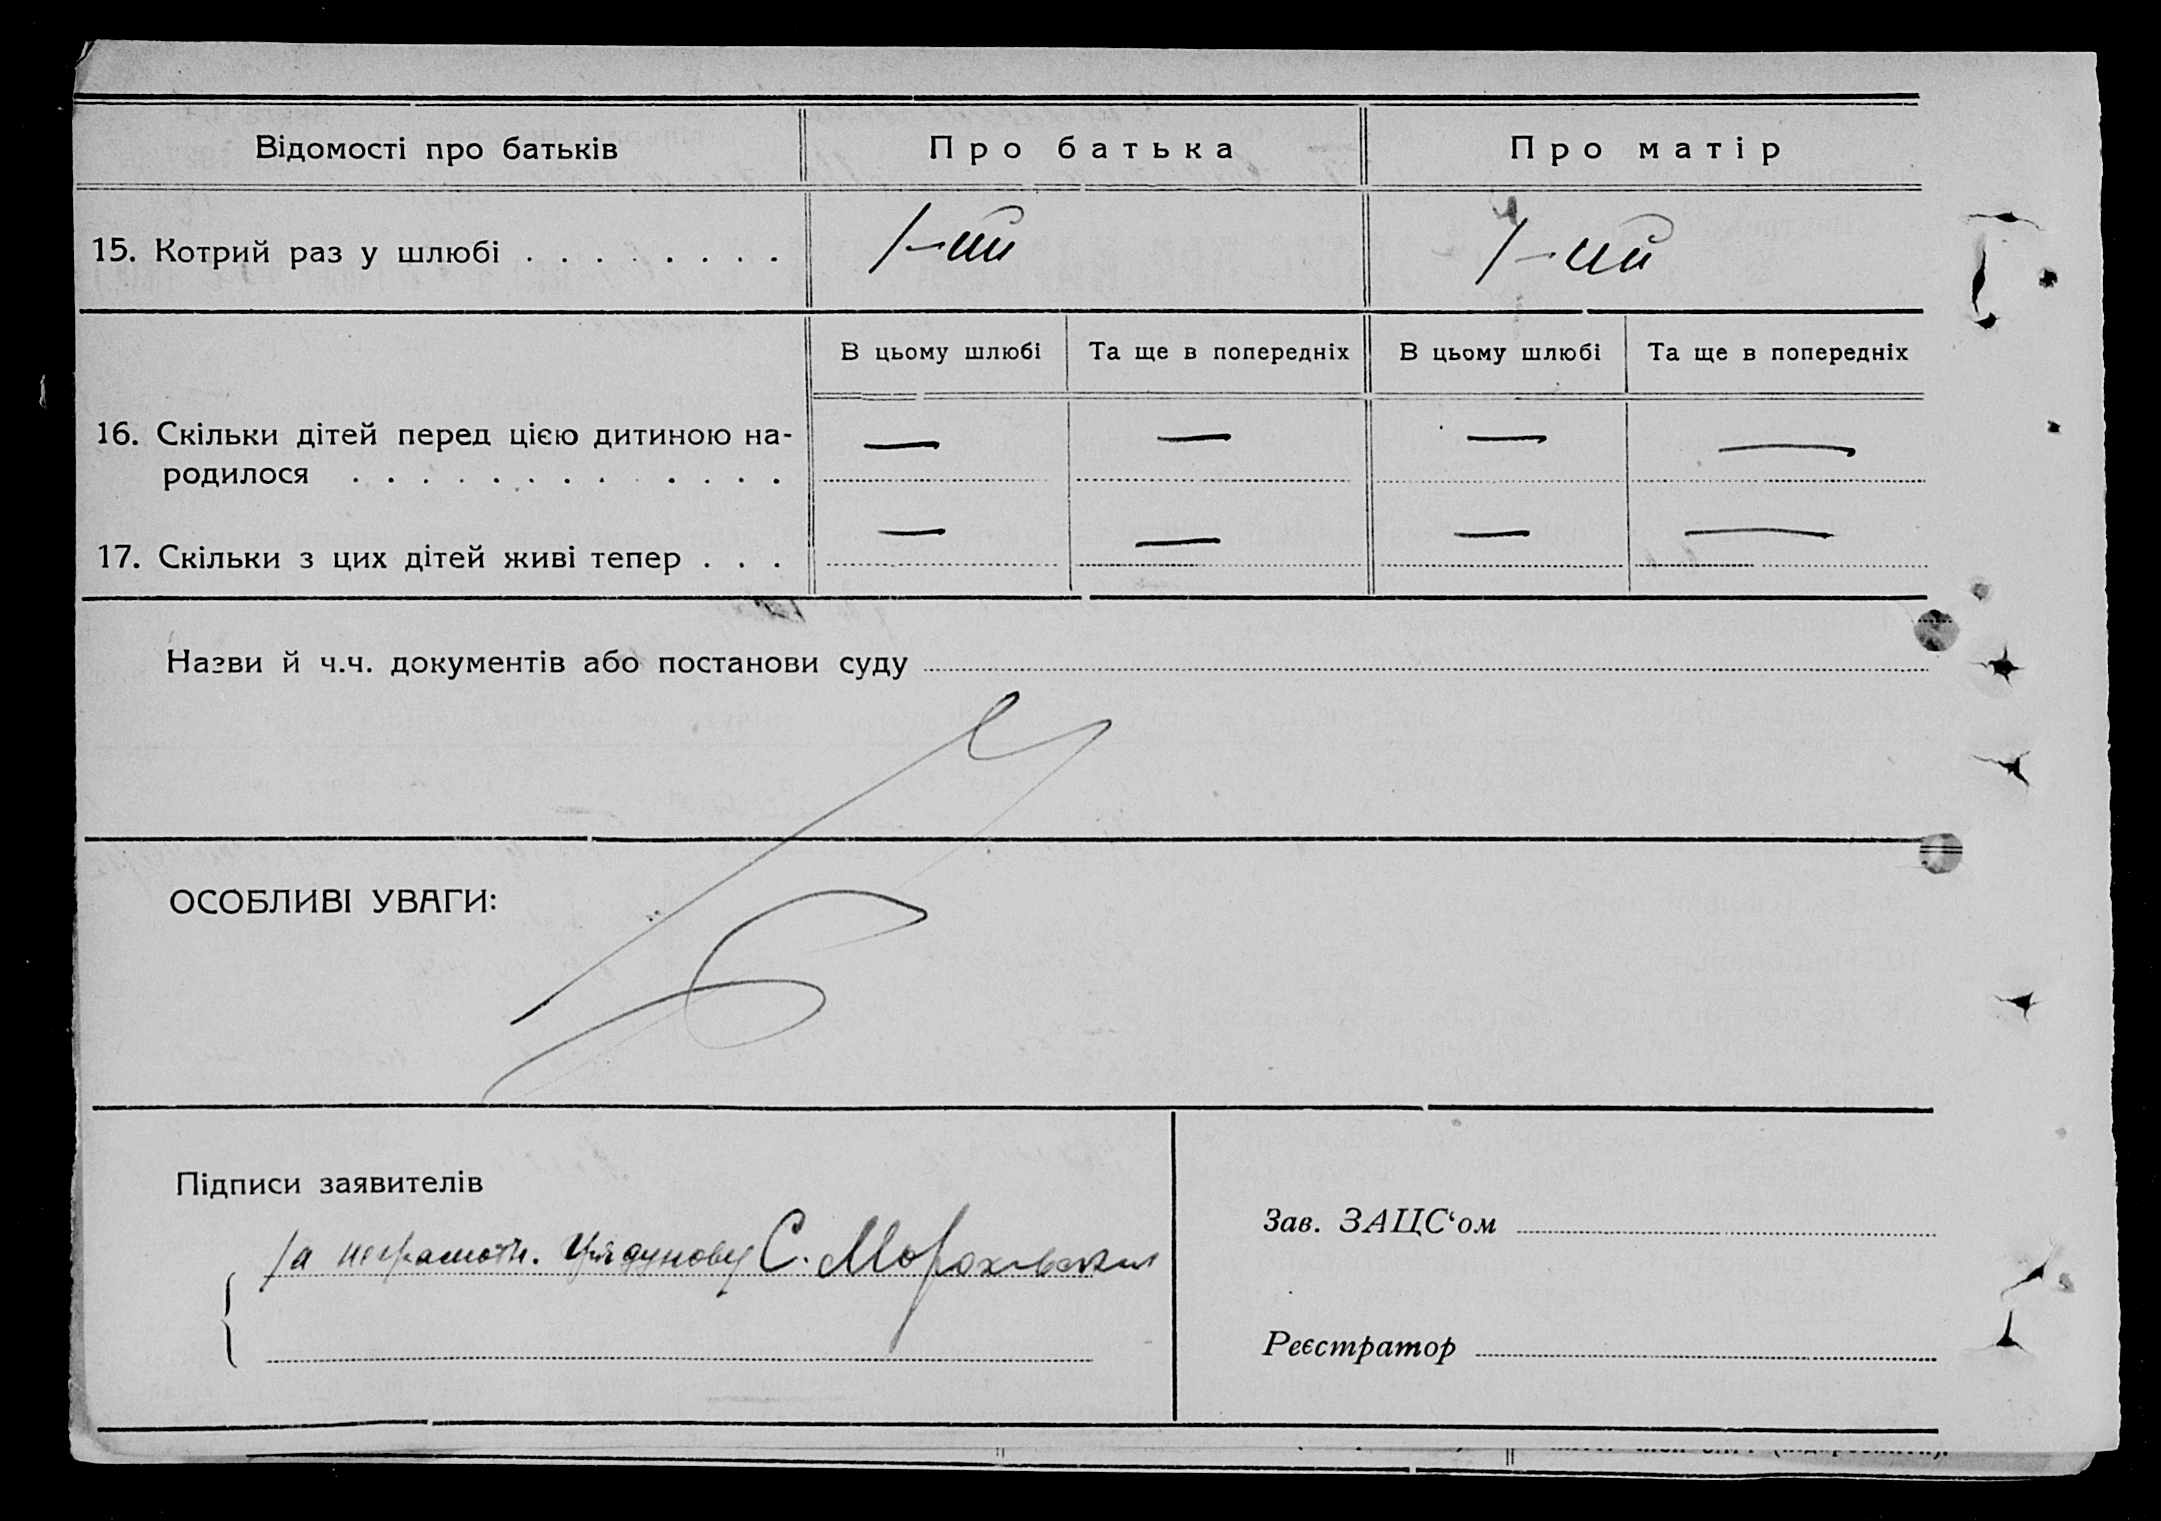 Відомості про батьків Про батька Про матір
15. Котрий раз у шлюбі . . . . . . . . 1-ий 1-ий
В цьому шлюбі Та ще в попередніх В цьому шлюбі Та ще в попередніх
16. Скільки дітей перед цією дитиною на- — — — —
родилося . . . . . . . . . . . . .
17. Скільки з цих дітей живі тепер . . . — — — —
Назви й ч.ч. документів або постанови суду
ОСОБЛИВІ УВАГИ:
Підписи заявителів
За неграмотн. С.
Зав. ЗАЦС‘ом
Реєстратор